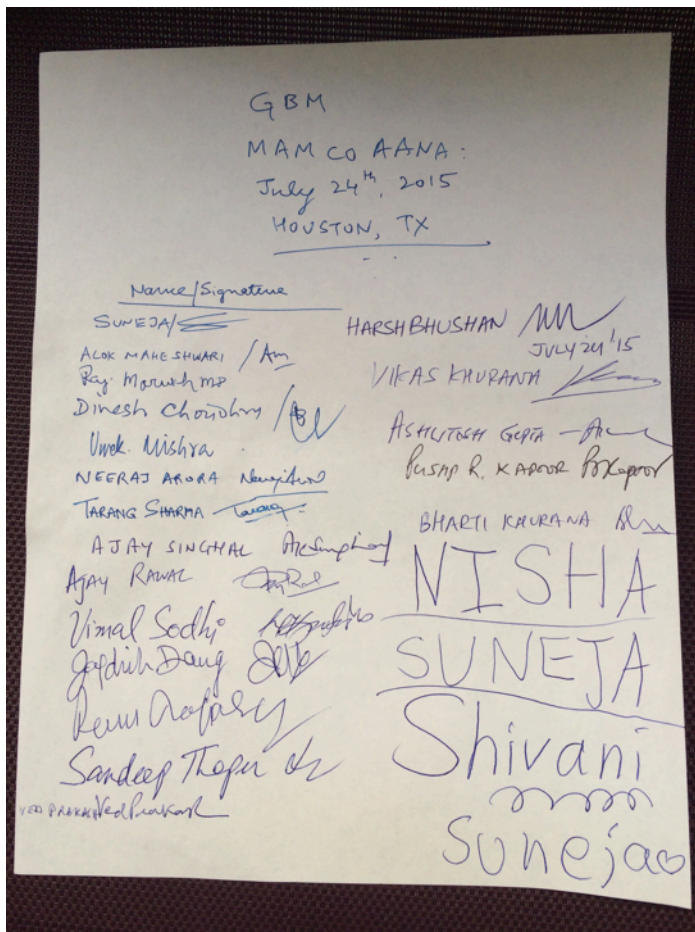 GBM
MAMCOAANA:
July 24th, 2015
HOUSTON, TX
Name/Signature
SUNEJA/
ALOK MAHESHWARI /Am
Raj
Dinesh Choudhry /
Vivek Mishra
NEERAJ ARORA Neeraj Arora
TARANG SHARMA Tarang
AJAY SINGHAL
AJAY RAWAL
Vimal Sodhi
Jagdish Dang
Renu
Sandeep Thaper
VED PRAKASH Ved Prakash
HARSH BHUSHAN
JULY 24 '15
VIKAS KHURANA
ASHUTOSH GUPTA
PUSHP R. KAPOOR PRKapoor
BHARTI KHURANA
NISHA
SUNEJA
Shivani
Suneja